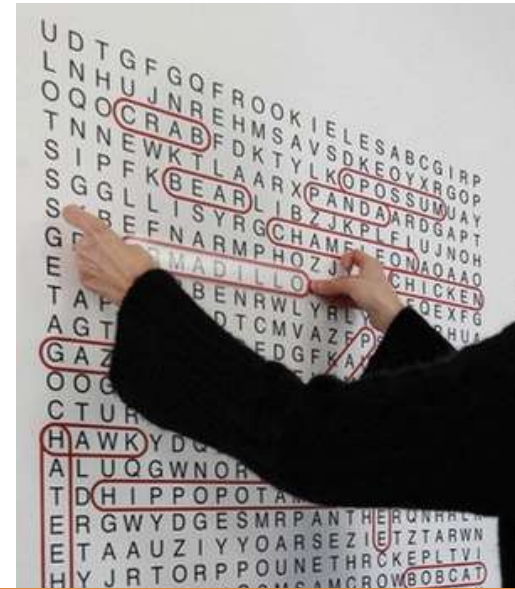 U D T G F G Q F R O O K I E L E S A B C G I R P
L N H U J N R E H M S A V S D K E O Y X R G O P
O Q O C R A B F D K T Y L K O P O S S U M U A Y
T N N E W K T L A A R X P A N D A A R D G A P T
S I P F K B E A R L I B Z J K P L F I U J N O H
S G G L L I S Y R G C H A M E L E O N A O A A O
S R E F N A R M P H O Z J C H I C K E N
G D R M A D I L L O E Q E X F G
E B E N R W L Y R L R H U A
T A P D T C M V A Z F P
A G T E D G F K A
G A Z
O O G
C T U R
H A W K Y D Q
A L U Q G W N O R
T D H I P P O P O T A M
E R G W Y D G E S M R P A N T H E R Q N H R
E T A A U Z I Y Y O A R S E Z I E T Z T A R W N
H Y J R T O R P P O U N E T H R C K E P L T V I
S A M C R O W B O B C A T